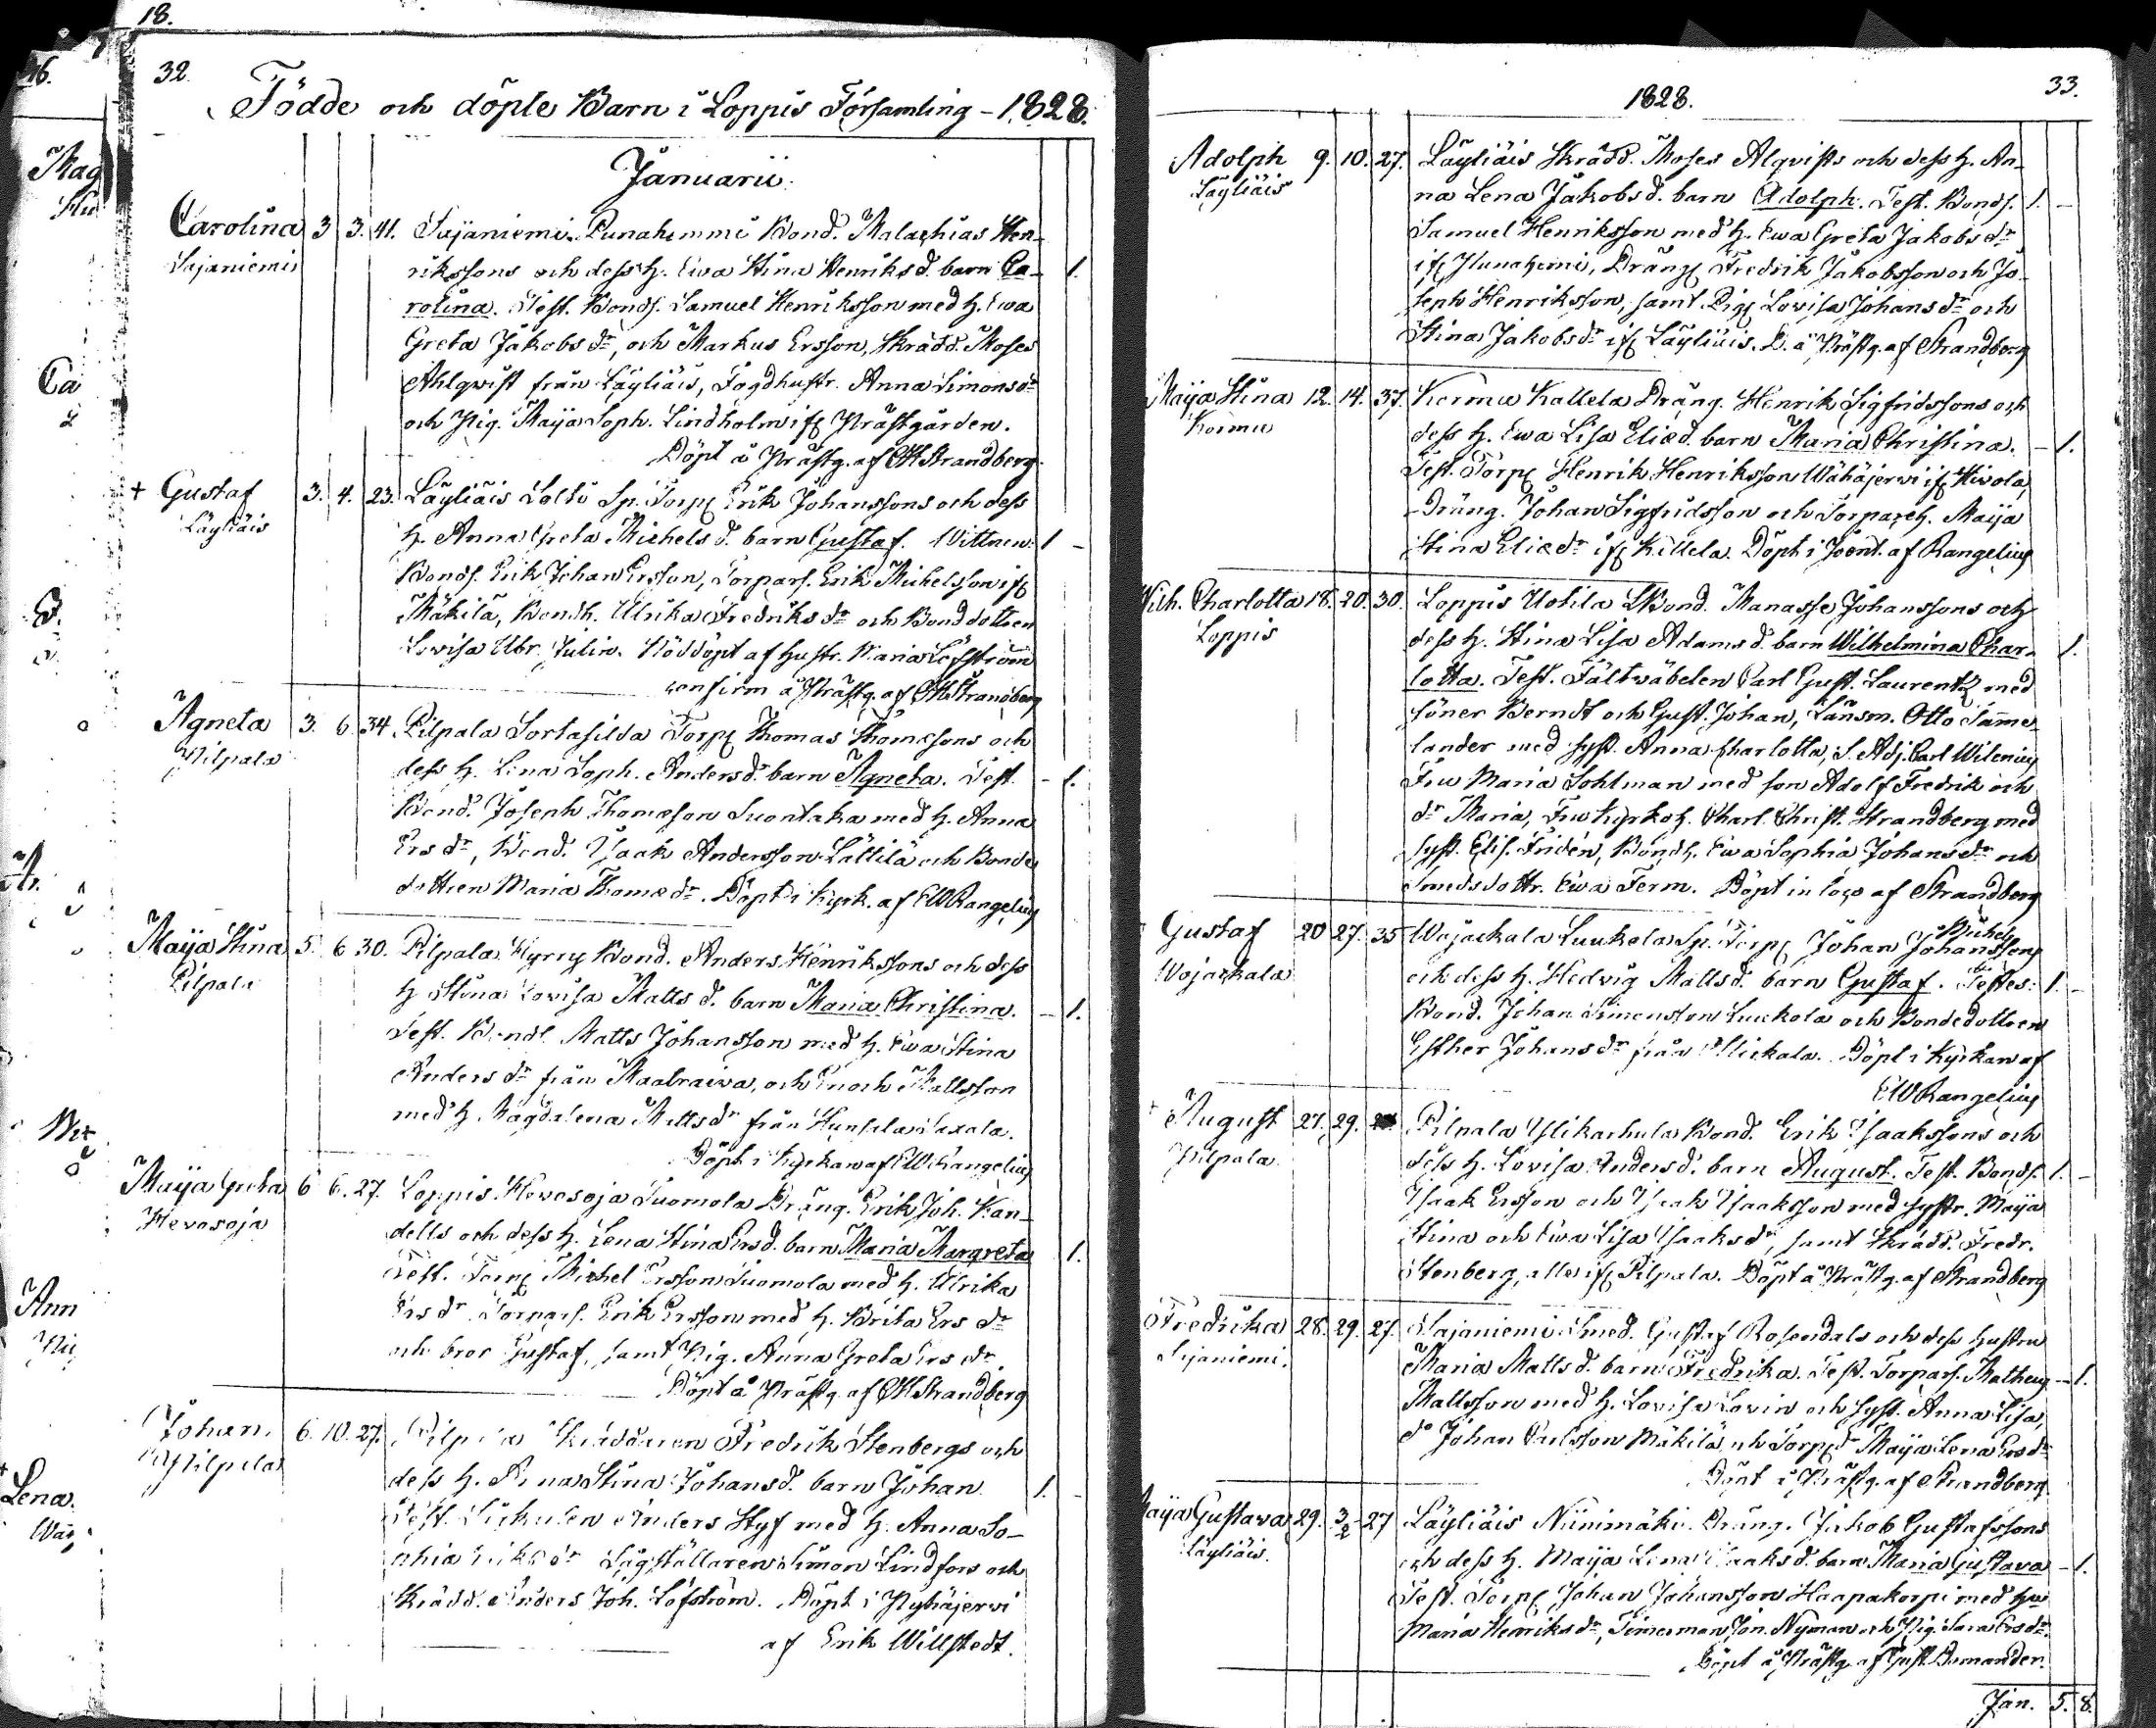 18.
32.
Födde och döpte Barn i Loppis Församling - 1828.
Januarii.
Carolina 3 3. 41. Sajaniemi Punahemmi Bond. Malachias Hen-
Sajaniemi
rikssons och dess h. Ewa Stina Henriksd. barn Ca- 1.
rolina. Test. Bonds. Samuel Henriksson med h. Ewa
Greta Jakobs dr, och Markus Ersson, Skrädd. Moses
Ahlqvist från Läyliäis, Fogdhustr. Anna Simonsdr
och Pig. Maija Soph. Lindholm if. Prästgården.
Döpt å Prästg. af Strandberg
+ Gustaf 3. 4. 23. Läyliäis Sp. Torp. Erik Johanssons och dess
Läyliäis
h. Anna Greta Michelsd. barn Gustaf. Wittnen: 1 -
Bonds. Erik Johan Ersson, Torpars. Erik Michelsson if.
Mäkilä, Bondh. Ulrika Fredriks dr och Bonddottren
Lovisa Ulr. Julin. Nöddöpt af hustr. Maria Löfström
confirm å Prästg. af Strandberg
Agneta 3. 6. 34. Pilpala Sortasilda Torp. Thomas Thomæsons och
Pilpala
dess h. Lena Soph. Andersd. barn Agneta. Test. - 1.
Bond. Joseph Thomæson Suontaka med h. Anna
Ers dr, Bond. Isaak Andersson Lättilä och Bonde
dottren Maria Thomæ dr. Döpt i Kyrk. af EW Rangelius
Maija Stina 5. 6 30. Pilpala Hyrry Bond. Anders Henrikssons och dess
Pilpala
h. Stina Lovisa Matts d. barn Maria Christina. - 1.
Test. Bonds. Matts Johansson med h. Ewa Stina
Anders dr från och Enoch Mattsson
med h. Magdalena Matts dr från
Döpt i Kyrkan af EW Rangelius
Maija Greta 6 6. 27. Loppis Hevosoja Tuomola Dräng. Erik Joh. Kan-
Hevosoja
dells och dess h. Lena Stina Ersd. barn Maria Margreta 1.
Test. Torp. Michel Ersson Tuomola med h. Ulrika
Ers dr Torpars. Erik Ersson med h. Brita Ers dr
och bror Gustaf, samt Pig. Anna Greta Ers dr.
Döpt å Prästg. af Strandberg
Johan 6. 10. 27. Pilpala Skräddaren Fredrik Stenbergs och
Pilpala
dess h. Stina Johansd. barn Johan 1. -
Test. Anders Styf med h. Anna So-
phia Simon Lindfors och
Skrädd. Anders Joh. Löfström. Döpt i Pyhäjerwi
af Erik Willstedt.
33.
1828.
Adolph 9. 10. 27. Läyliäis Skrädd. Moses Alqvists och dess h. An-
Läyliäis
na Lena Jakobs d. barn Adolph. Test. Bonds. 1. -
Samuel Henriksson med h. Ewa Greta Jakobs dr
if. Punahemi, Dräng. Fredrik Jakobsson och Jo-
seph Henriksson, samt Pig. Lovisa Johans dr och
Stina Jakobs dr if. Läyliäis. D. å Prästg. af Strandberg
Maija Stina 12. 14. 37. Kormu Kattela Dräng. Henrik Sigfridssons och
Kormu
dess h. Ewa Lisa Eliæd. barn Maria Christina. - 1.
Test. Torp. Henrik Henriksson Wähäjerwi if. Hivola,
Dräng. Johan Sigfridsson och Torpare h. Maija
Stina Eliæ dr if. Döpt i af Rangelius
Wilh. Charlotta 18. 20. 30. Loppis Uotila Bond. Manasse Johanssons och
Loppis
dess h. Stina Lisa Adams d. barn Wilhelmina Char- 1.
lotta. Test. Fältwäbelen Carl Gust. Laurentz med
söner Berndt och Gust. Johan, Länsm. Otto
lander med syst. Anna Charlotta, S. Adj. Carl Wilenius
Fru Maria Sohlman med son Adolf Fredrik och
dr Maria, Fru Kyrkoh. Charl. Christ. Strandberg med
syst. Elis. Fridén, Bondh. Ewa Sophia Johans dr och
Smedsdottr. Ewa Ferm. Döpt in loco af Strandberg
Gustaf 20 27. 35 Wojaskala Luukola Sp. Torp. Johan Johanssons
Wojaskala
och dess h. Hedvig Matts d. barn Gustaf. Testes: 1. -
Bond. Johan Simonsson Luukola och Bondedottren
Esther Johans dr från Döpt i Kyrkan af
EW Rangelius
+ August 27. 29. Pilpala Bond. Erik Isaakssons och
Pilpala
dess h. Lovisa Anders d. barn August. Test. Bonds. 1. -
Isaak Ersson och Isaak Isaaksson med systr. Maija
Stina och Ewa Lisa Isaaks dr, samt Skrädd. Fredr.
Stenberg, alla if. Pilpala. Döpt å Prästg. af Strandberg
Fredrika 28. 29. 27. Sajaniemi Smed. Gustaf Rosendals och dess hustru
Sajaniemi.
Maria Matts d. barn Fredrika. Test. Torpars. Matheus - 1.
Mattsson med h. Lovisa Lovin och syst. Anna Lisa,
do Johan Carlsson Mäkilä, och Torp. dr Maija Lena Ers dr
Döpt å Prästg. af Strandberg.
Maija Gustava 29. 3/2 27 Läyliäis Niinimäki Dräng. Jakob Gustafssons
Läyliäis.
och dess h. Maija Lena Isaaks d. barn Maria Gustava - 1.
Test. Torp. Johan Johansson Haapakorpi med hu
Maria Henriks dr, Timerman Jon. Nyman och Pig. Sara Ers dr.
Döpt å Prästg. af Gust. Bomander.
Jan. 5. 8.